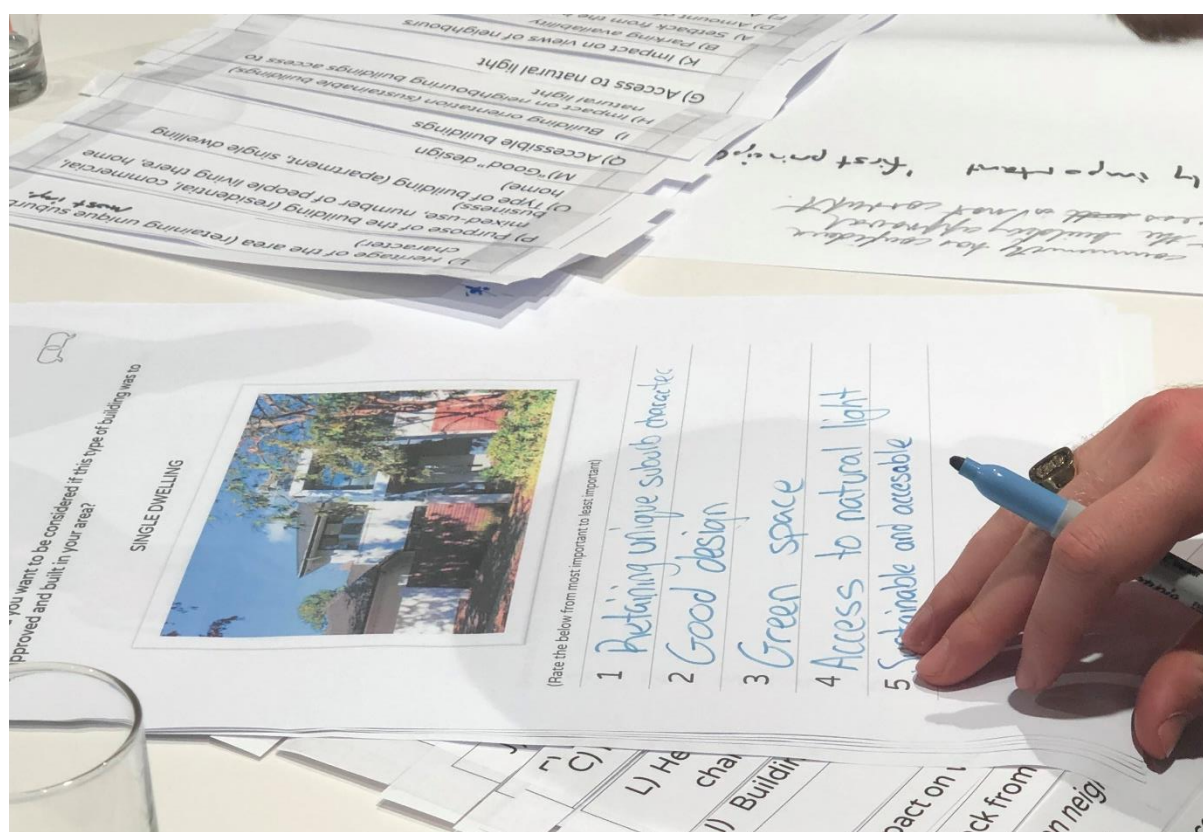 you want to be considered if this type of building was to
approved and built in your area?
SINGLE DWELLING
(Rate the below from most important to least important)
1 Retaining unique subub character
2 Good design
3 Green space
4 Access to natural light
5 Sustainable and accesable
L) Heritage of the area (retaining unique suburb
character)
most imp.
P) Purpose of the building (residential, commercial,
mixed-use, number of people living there, home
business)
O) Type of building (apartment, single dwelling
home)
M) "Good" design
Q) Accessible buildings
I) Building orientation (sustainable buildings)
H) Impact on neighbouring buildings access to
natural light
G) Access to natural light
K) Impact on views of neighbours
B) Parking availability
A) Setback from the
D) Amount of
community has confidence
the building approval
not consult.
ly important 'first principle
C)
L) He
cha
I) Buildin
pact on
ck from
n neig